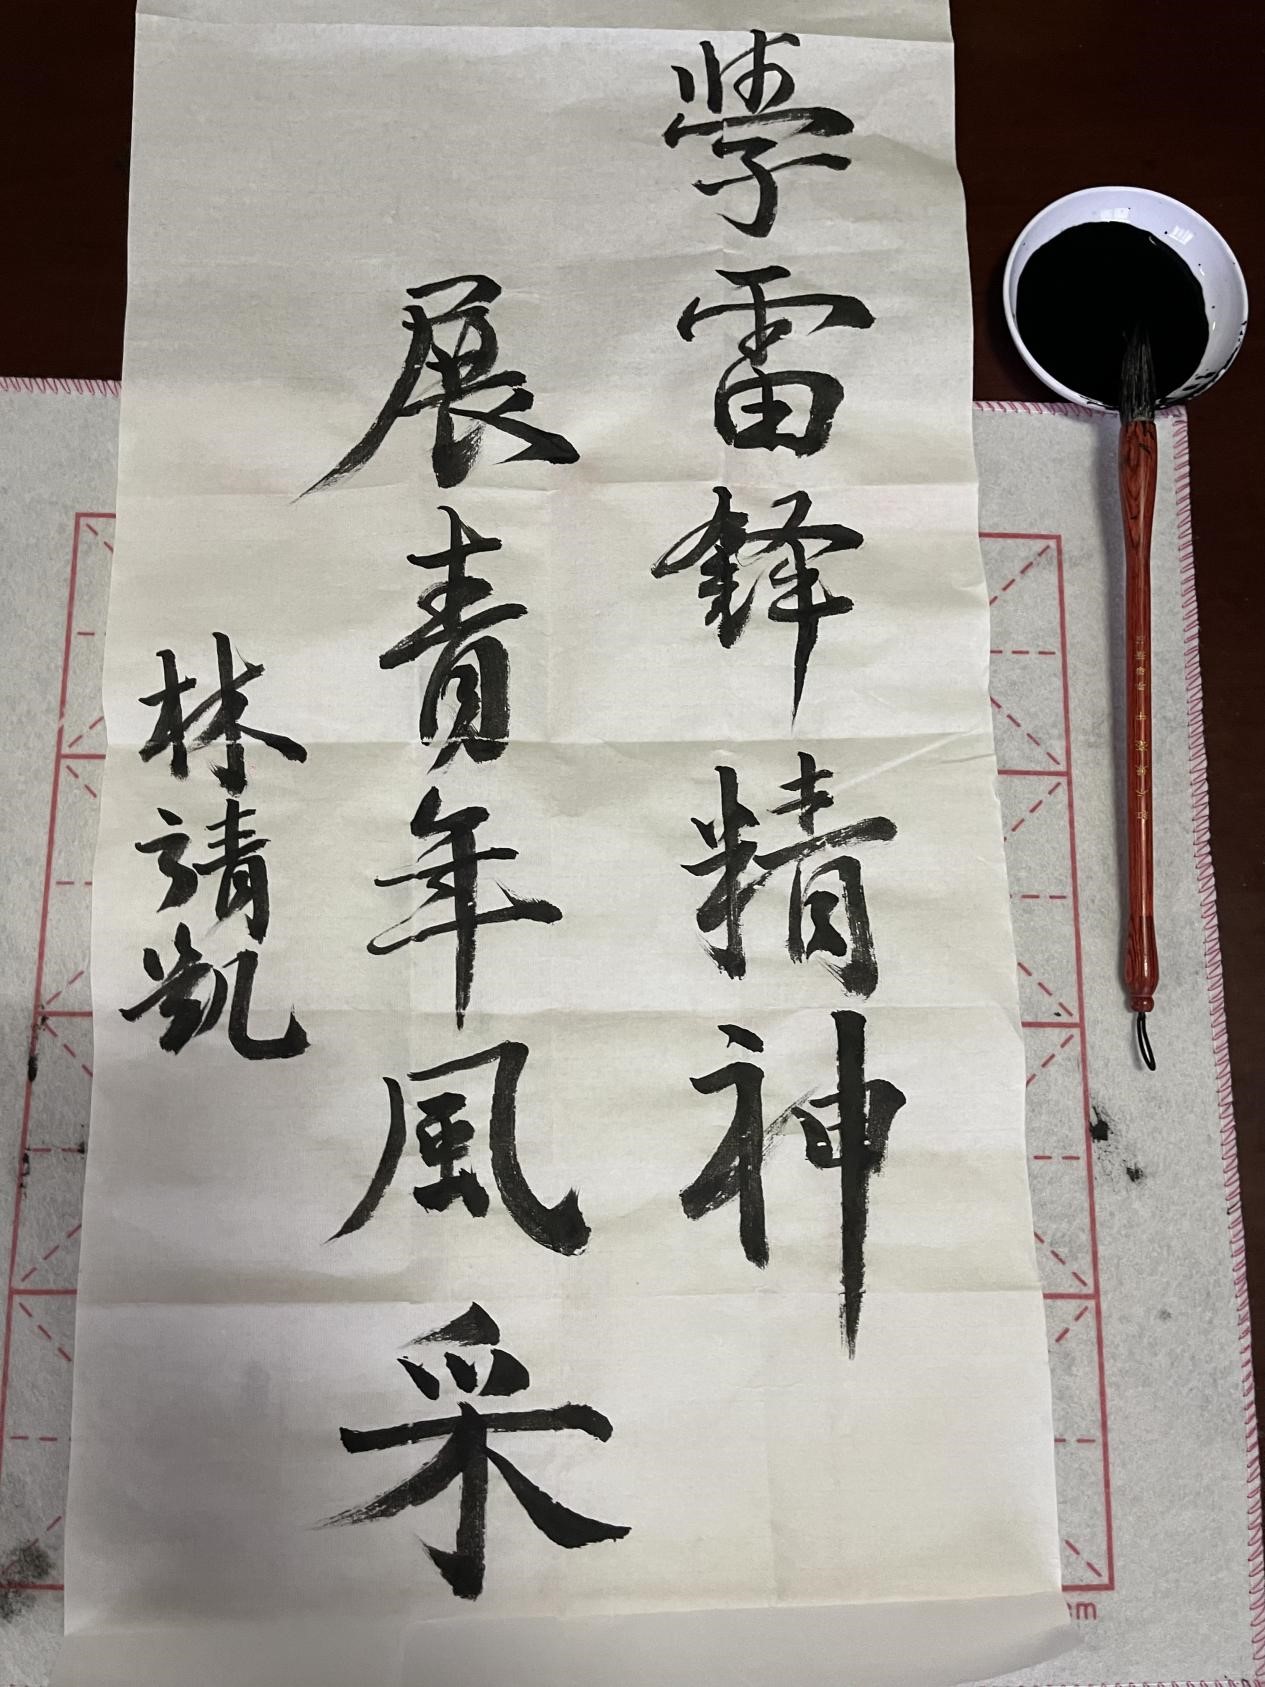 學雷鋒精神
展青年風采
林靖凱